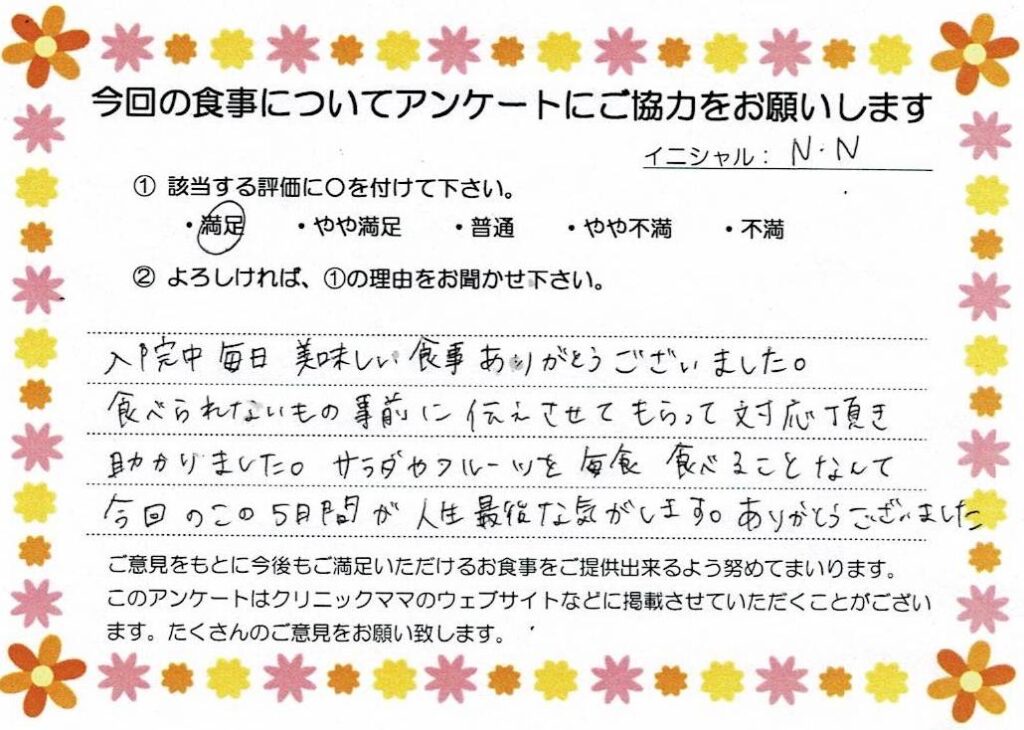 今回の食事についてアンケートにご協力をお願いします
イニシャル： N.N
① 該当する評価に○を付けて下さい。
・満足 ・やや満足 ・普通 ・やや不満 ・不満
② よろしければ、①の理由をお聞かせ下さい。
入院中 毎日 美味しい食事ありがとうございました。
食べられないもの事前に伝えさせてもらって対応頂き
助かりました。サラダやフルーツを毎食 食べることなんて
今回のこの5日間が人生最後な気がします。ありがとうございました
ご意見をもとに今後もご満足いただけるお食事をご提供出来るよう努めてまいります。
このアンケートはクリニックママのウェブサイトなどに掲載させていただくことがござい
ます。たくさんのご意見をお願い致します。